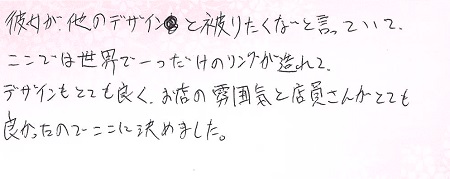 彼女が、他のデザインと被りたくないと言っていて、
ここでは世界で一つだけのリングが造れて、
デザインもとても良く、お店の雰囲気と店員さんがとても
良かったのでここに決めました。